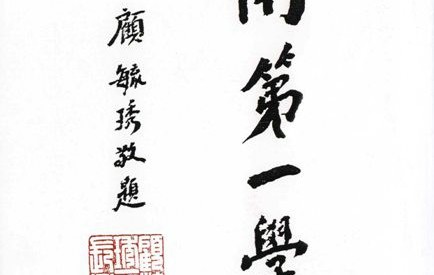 第一學
顧毓琇敬題